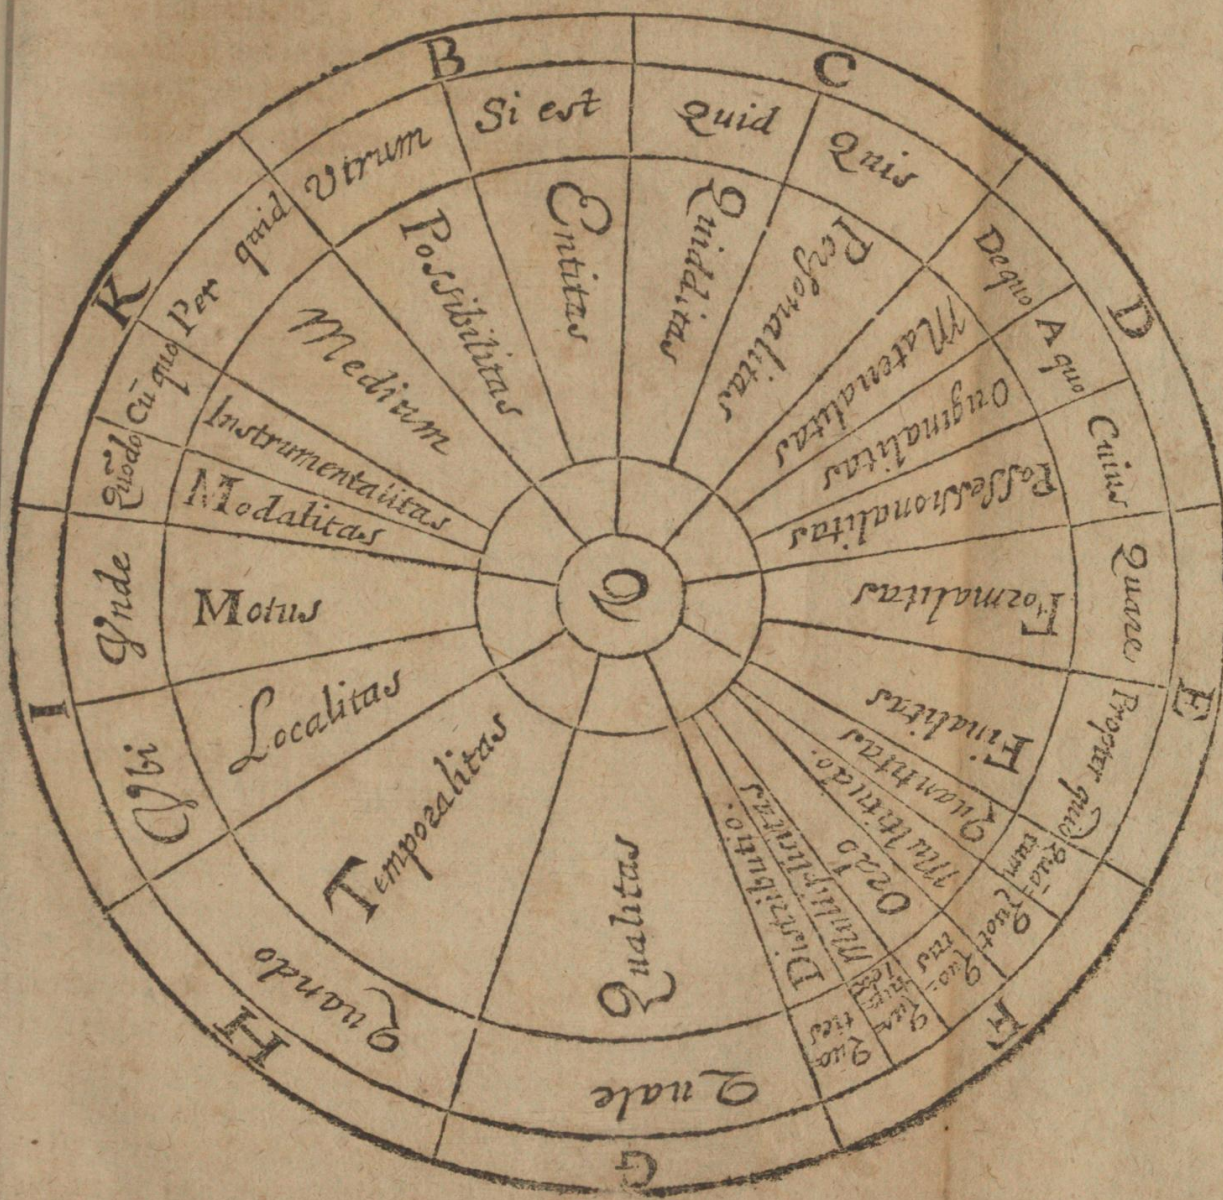 B
C
D
E
F
G
H
I
K
Utrum
Si est
Quid
Quis
De quo
A quo
Cuius
Quare
Propter quid
Quā-
tum
Quot
Quo-
tus
Quo-
ties
Quale
Quando
Ubi
Unde
Quōdo
Cū quo
Per quid
Possibilitas
Entitas
Quidditas
Personalitas
Materialitas
Originalitas
Possessionalitas
Formalitas
Finalitas
Quantitas
Multitudo.
Ordo
Multiplicitas
Distributio.
Qualitas
Temporalitas
Localitas
Motus
Modalitas
Instrumentalitas
Medium
Q